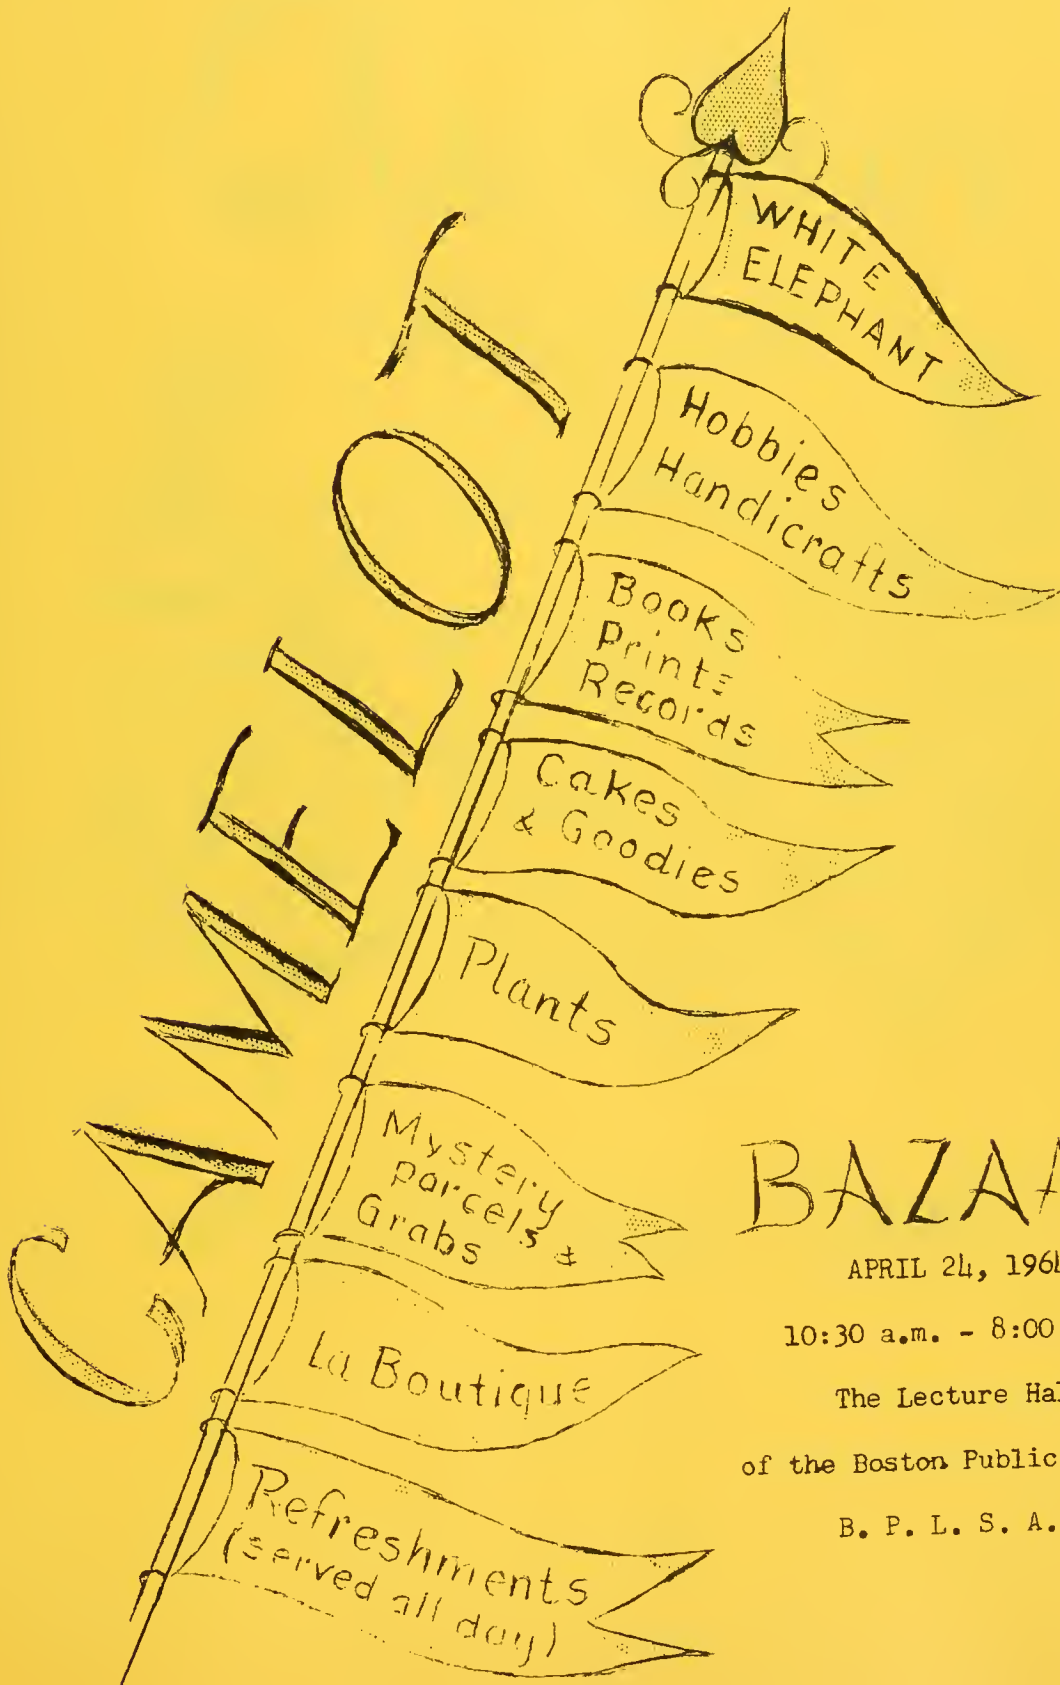 CAMELOT
WHITE
ELEPHANT
Hobbies
Handicrafts
Books
Prints
Records
Cakes
& Goodies
Plants
Mystery
parcels &
Grabs
La Boutique
Refreshments
(served all day)
BAZAA
APRIL 24, 196
10:30 a.m. - 8:00
The Lecture Hal
of the Boston Public
B. P. L. S. A.